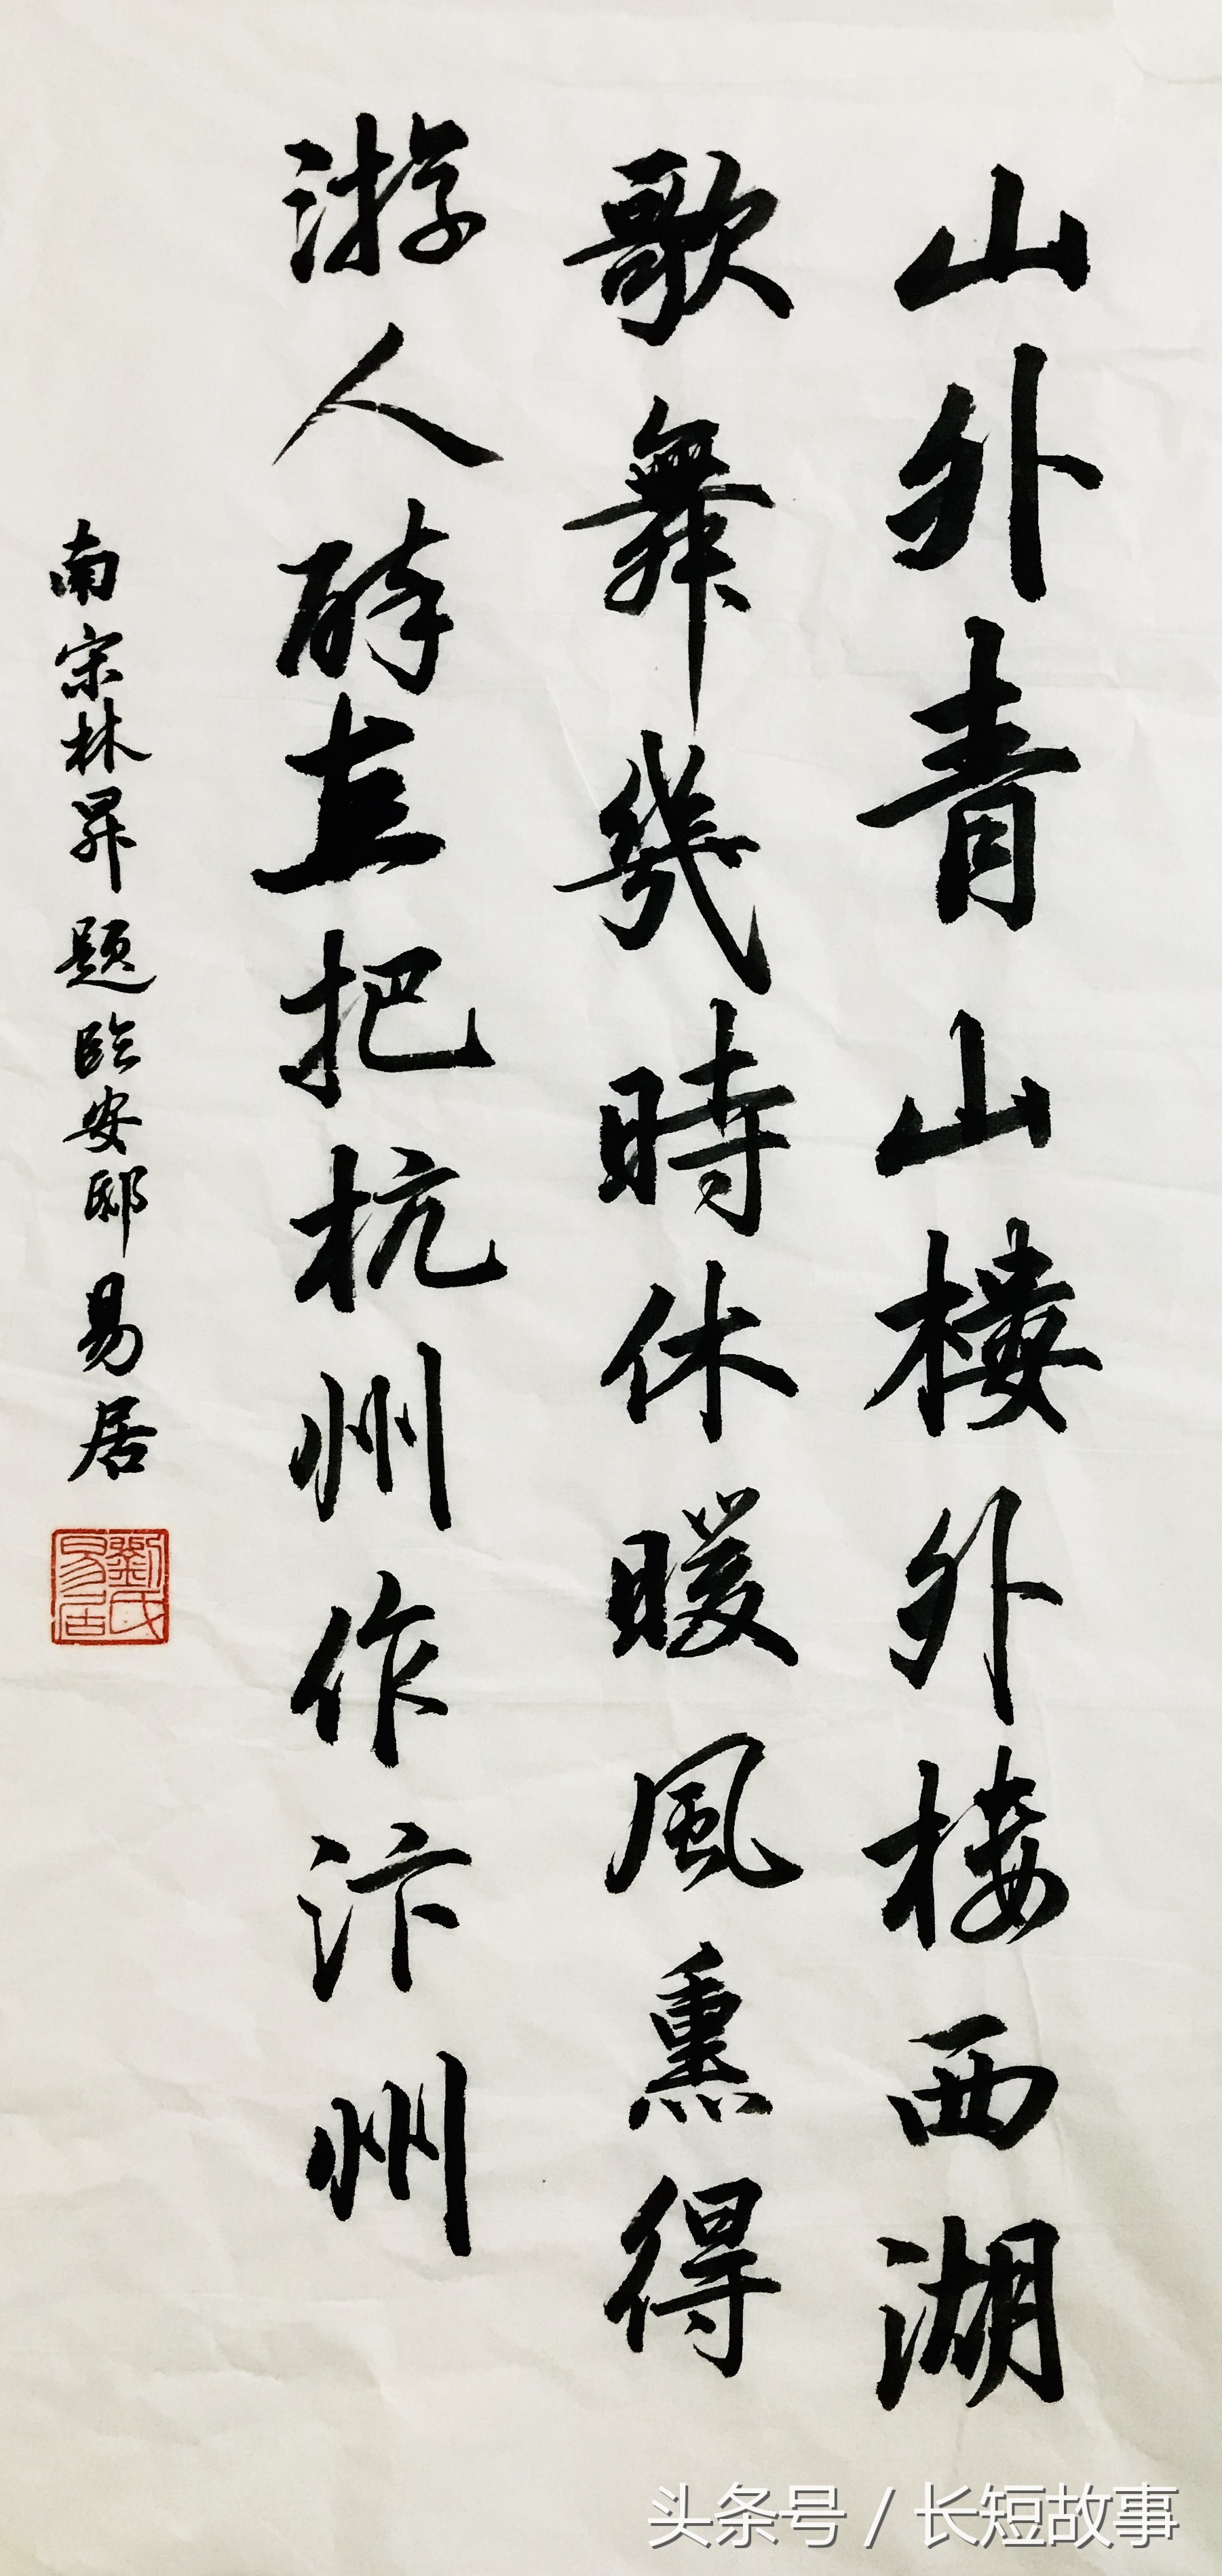 山外青山楼外楼西湖
歌舞幾時休暖風熏得
游人醉直把杭州作汴州
南宋林昇题临安邸易居
劉氏易居
头条号 / 长短故事